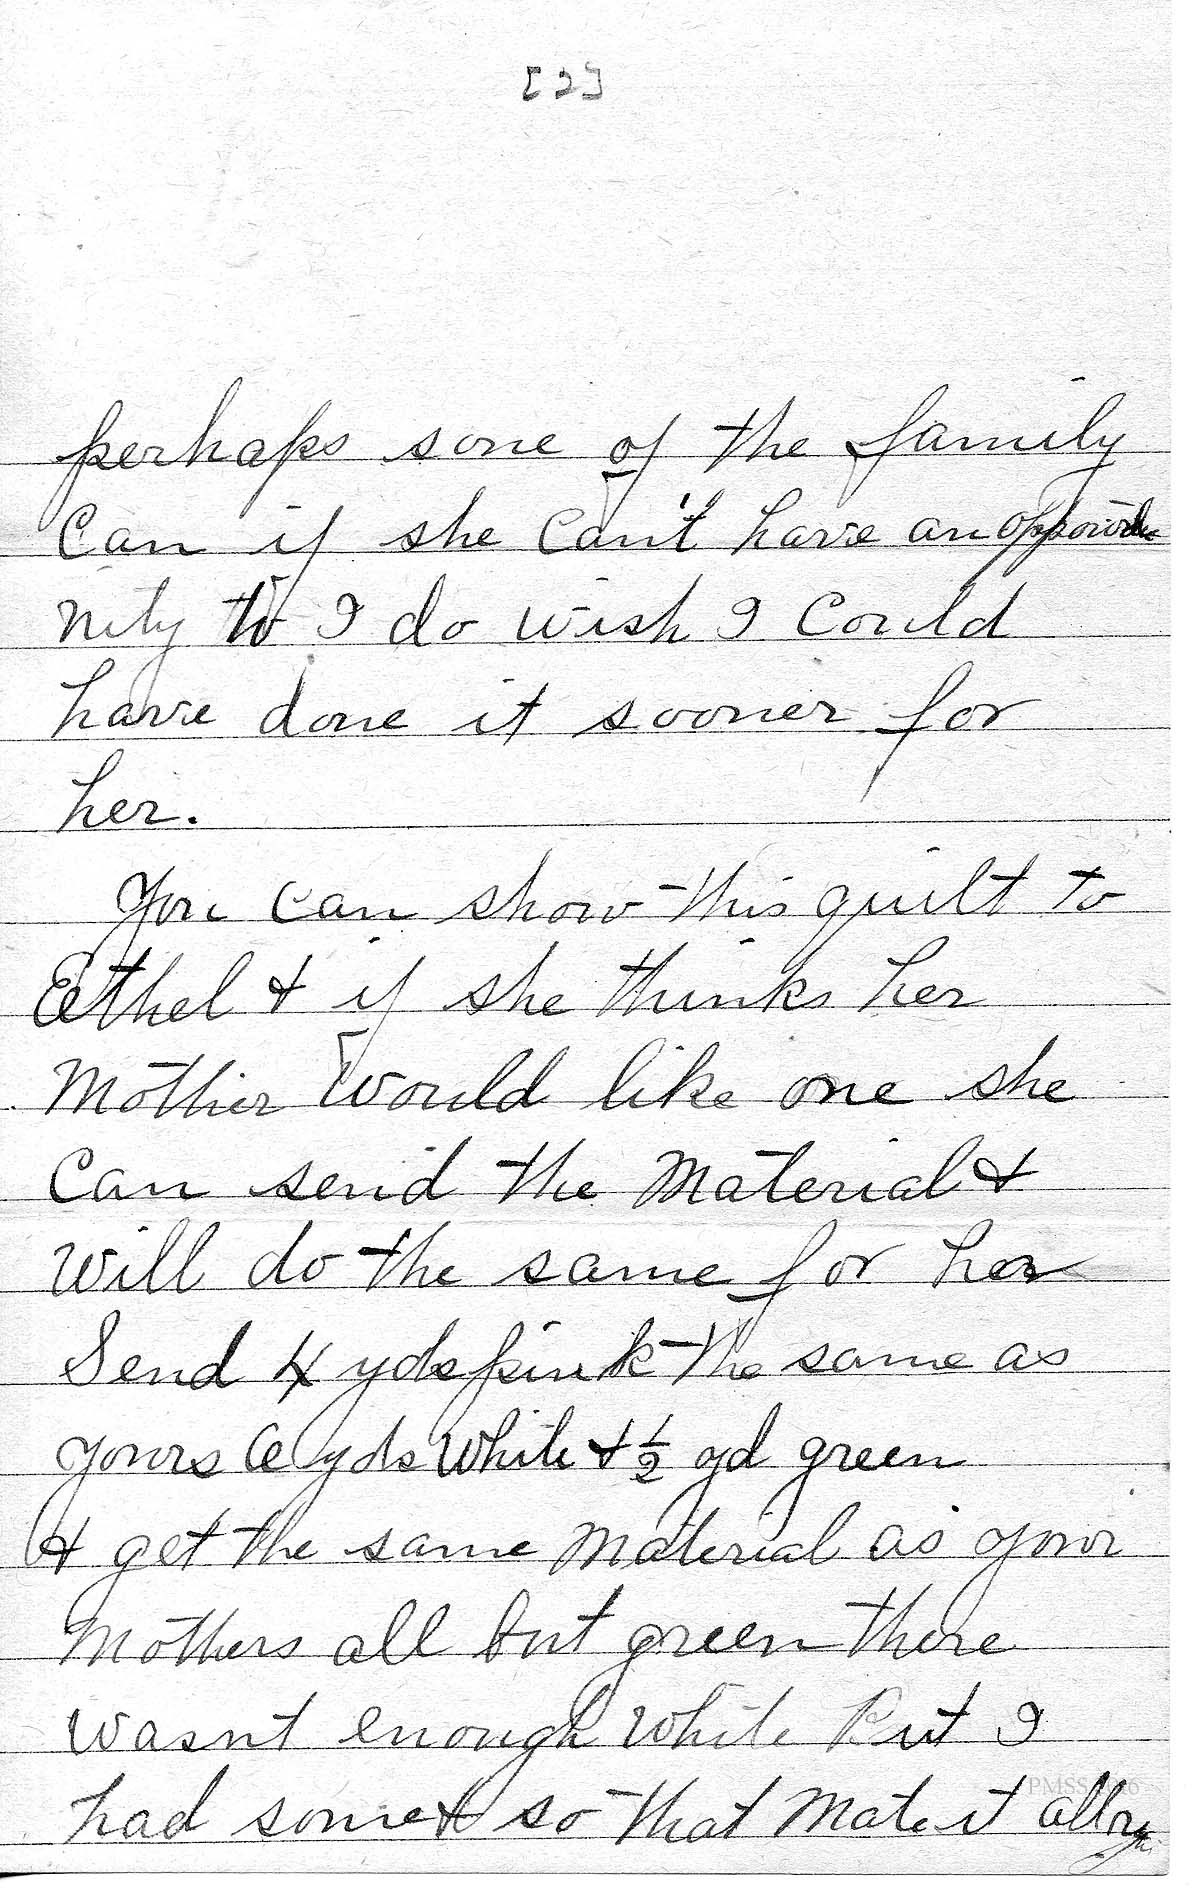 [2]
perhaps some of the family
Can if she Can't have an opportu
nity to I do wish I Could
have done it sooner for
her.
You can show this quilt to
Eethel & if she thinks her
Mother Would like one she
Can send the Material &
Will do the same for her
Send 4 yds pink the same as
yours yds White & ½ yd green
& get the same Material as your
Mothers all but green there
Wasnt enough White But I
had some & so that Made it allright
PMSS